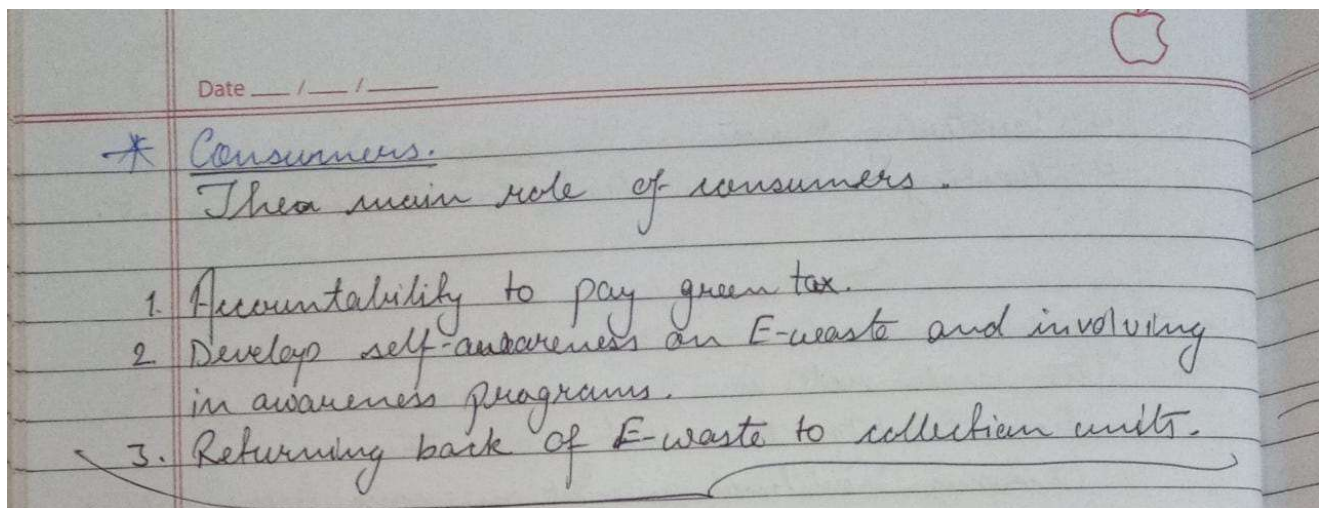 Date __ / __ / ____
* Consumers.
The main role of consumers.
1. Accountability to pay green tax.
2. Develop self-awareness on E-waste and involving
in awareness programs.
3. Returning back of E-waste to collection units.